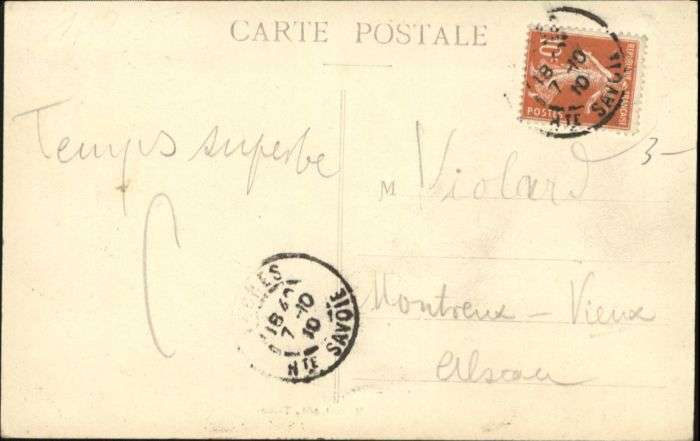 CARTE POSTALE
10
REPUBLIQUE FRANÇAISE
POSTES
18
7-10
10
HTE SAVOIE
Temps superbe
M Violard 3-
Montreux-Vieux
Alsace
18 40
7-10
10
HTE SAVOIE